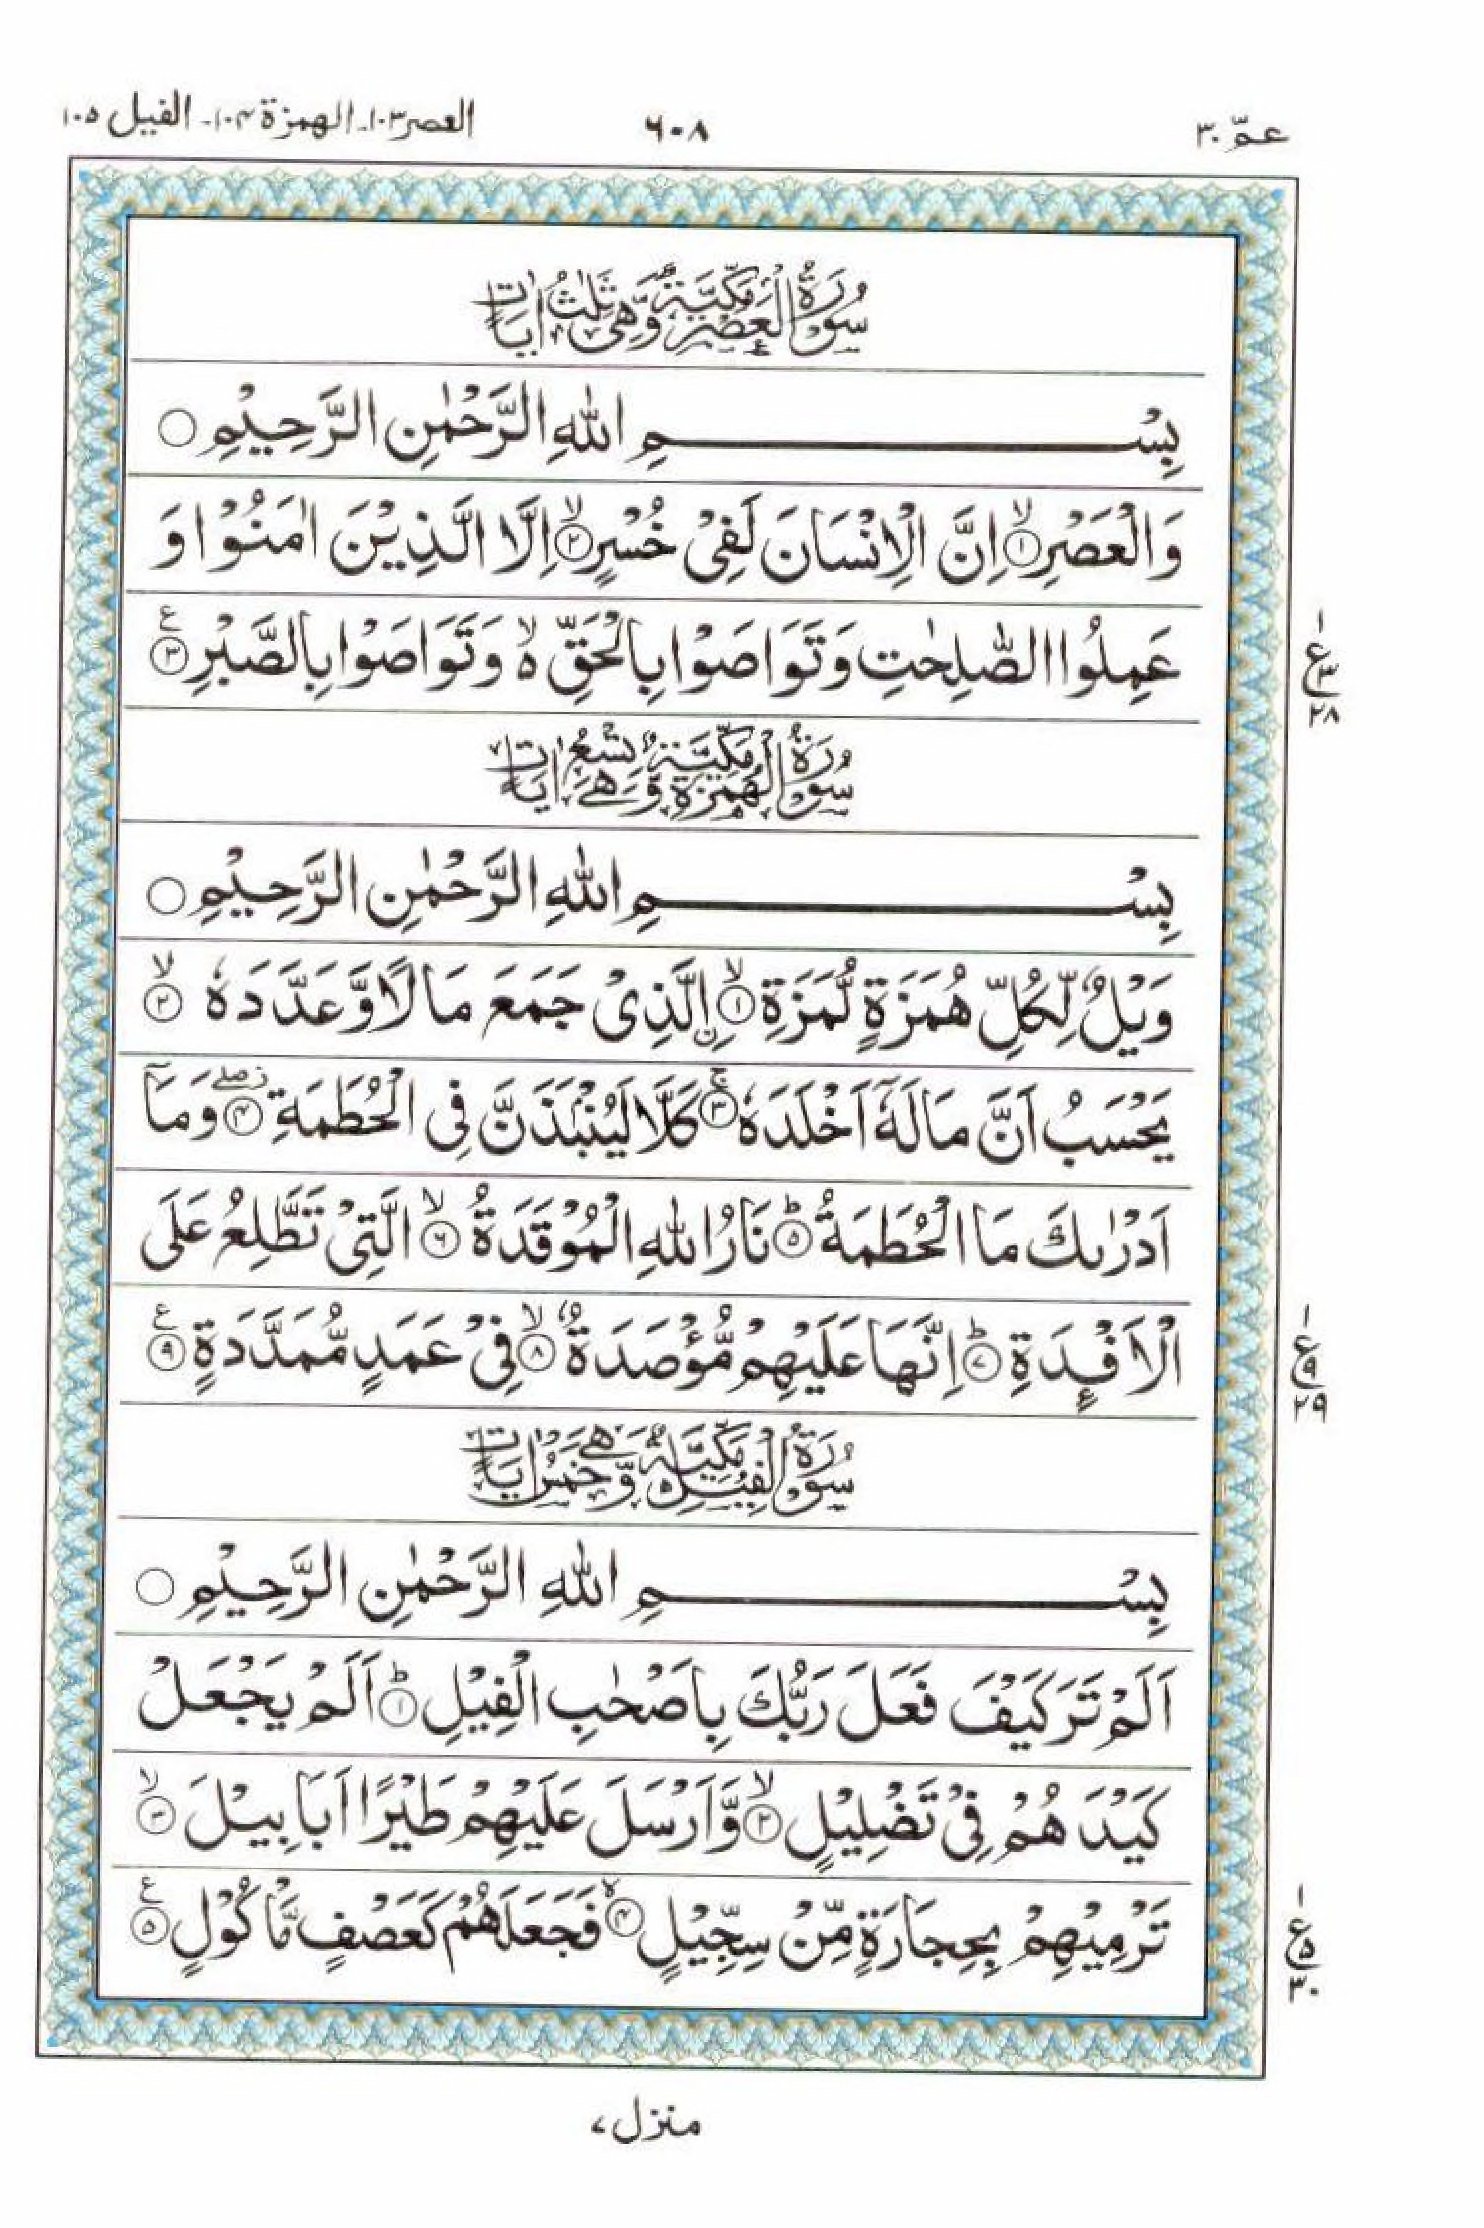 عمّ ٣٠
٦٠٨
العصر ١٠٣۔ الهمزة ١٠٤۔ الفيل ١٠٥
سُوْرَةُ الْعَصْرِ مَكِّيَّةٌ وَّهِىَ ثَلٰثُ اٰيَاتٍ
بِسْمِ اللّٰهِ الرَّحْمٰنِ الرَّحِيْمِ ○
وَالْعَصْرِ ۙ‏﴿۱﴾ اِنَّ الْاِنْسَانَ لَفِىْ خُسْرٍ ۙ‏﴿۲﴾ اِلَّا الَّذِيْنَ اٰمَنُوْا وَ
عَمِلُوا الصّٰلِحٰتِ وَتَوَاصَوْا بِالْحَقِّ ۙ۬ وَتَوَاصَوْا بِالصَّبْرِ ﴿۳﴾ ع
١ ع ٣ ٢٨
سُوْرَةُ الْهُمَزَةِ مَكِّيَّةٌ وَّهِىَ تِسْعُ اٰيَاتٍ
بِسْمِ اللّٰهِ الرَّحْمٰنِ الرَّحِيْمِ ○
وَيْلٌ لِّكُلِّ هُمَزَةٍ لُّمَزَةِ ۙ‏﴿۱﴾ اِ۟لَّذِىْ جَمَعَ مَالًا وَّعَدَّدَهٗ ۙ‏﴿۲﴾
يَحْسَبُ اَنَّ مَالَهٗۤ اَخْلَدَهٗ ۚ‏﴿۳﴾ كَلَّا لَيُنْۢبَذَنَّ فِى الْحُطَمَةِ ۖ‏﴿۴﴾ وَمَاۤ
اَدْرٰىكَ مَا الْحُطَمَةُ ؕ‏﴿۵﴾ نَارُ اللّٰهِ الْمُوْقَدَةُ ۙ‏﴿۶﴾ الَّتِىْ تَطَّلِعُ عَلَى
الْاَفْـِٕدَةِ ؕ‏﴿۷﴾ اِنَّهَا عَلَيْهِمْ مُّؤْصَدَةٌ ۙ‏﴿۸﴾ فِىْ عَمَدٍ مُّمَدَّدَةٍ ﴿۹﴾ ع
١ ع ٩ ٢٩
سُوْرَةُ الْفِيْلِ مَكِّيَّةٌ وَّهِىَ خَمْسُ اٰيَاتٍ
بِسْمِ اللّٰهِ الرَّحْمٰنِ الرَّحِيْمِ ○
اَلَمْ تَرَ كَيْفَ فَعَلَ رَبُّكَ بِاَصْحٰبِ الْفِيْلِ ؕ‏﴿۱﴾ اَلَمْ يَجْعَلْ
كَيْدَهُمْ فِىْ تَضْلِيْلٍ ۙ‏﴿۲﴾ وَّاَرْسَلَ عَلَيْهِمْ طَيْرًا اَبَابِيْلَ ۙ‏﴿۳﴾
تَرْمِيْهِمْ بِحِجَارَةٍ مِّنْ سِجِّيْلٍ ۙ۬‏﴿۴﴾ فَجَعَلَهُمْ كَعَصْفٍ مَّاْكُوْلٍ ﴿۵﴾ ع
١ ع ٥ ٣٠
منزل ٧